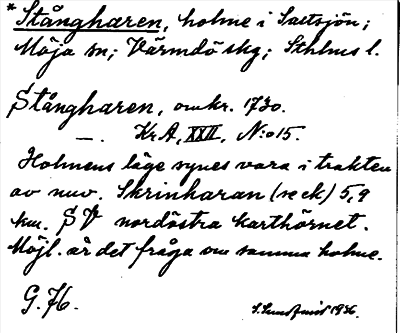 * Stångharen, holme i Saltsjön;
Möja sn; Värmdö skg; Sthlms l.
Stångharen, omkr. 1730.
—. Kr A, XXII, N:o 15.
Holmens läge synes vara i trakten
av nuv. Skrinharan (se ek) 5,9
km. SV nordöstra karthörnet.
Möjl. är det fråga om samma holme.
G. H.
S. Sundqvist 1936.